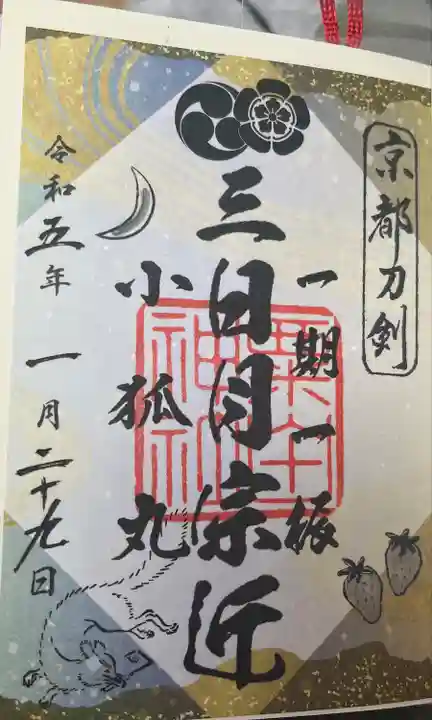 京都刀剣
一期一振
三日月宗近
小狐丸
令和五年 一月二十九日
粟田神社